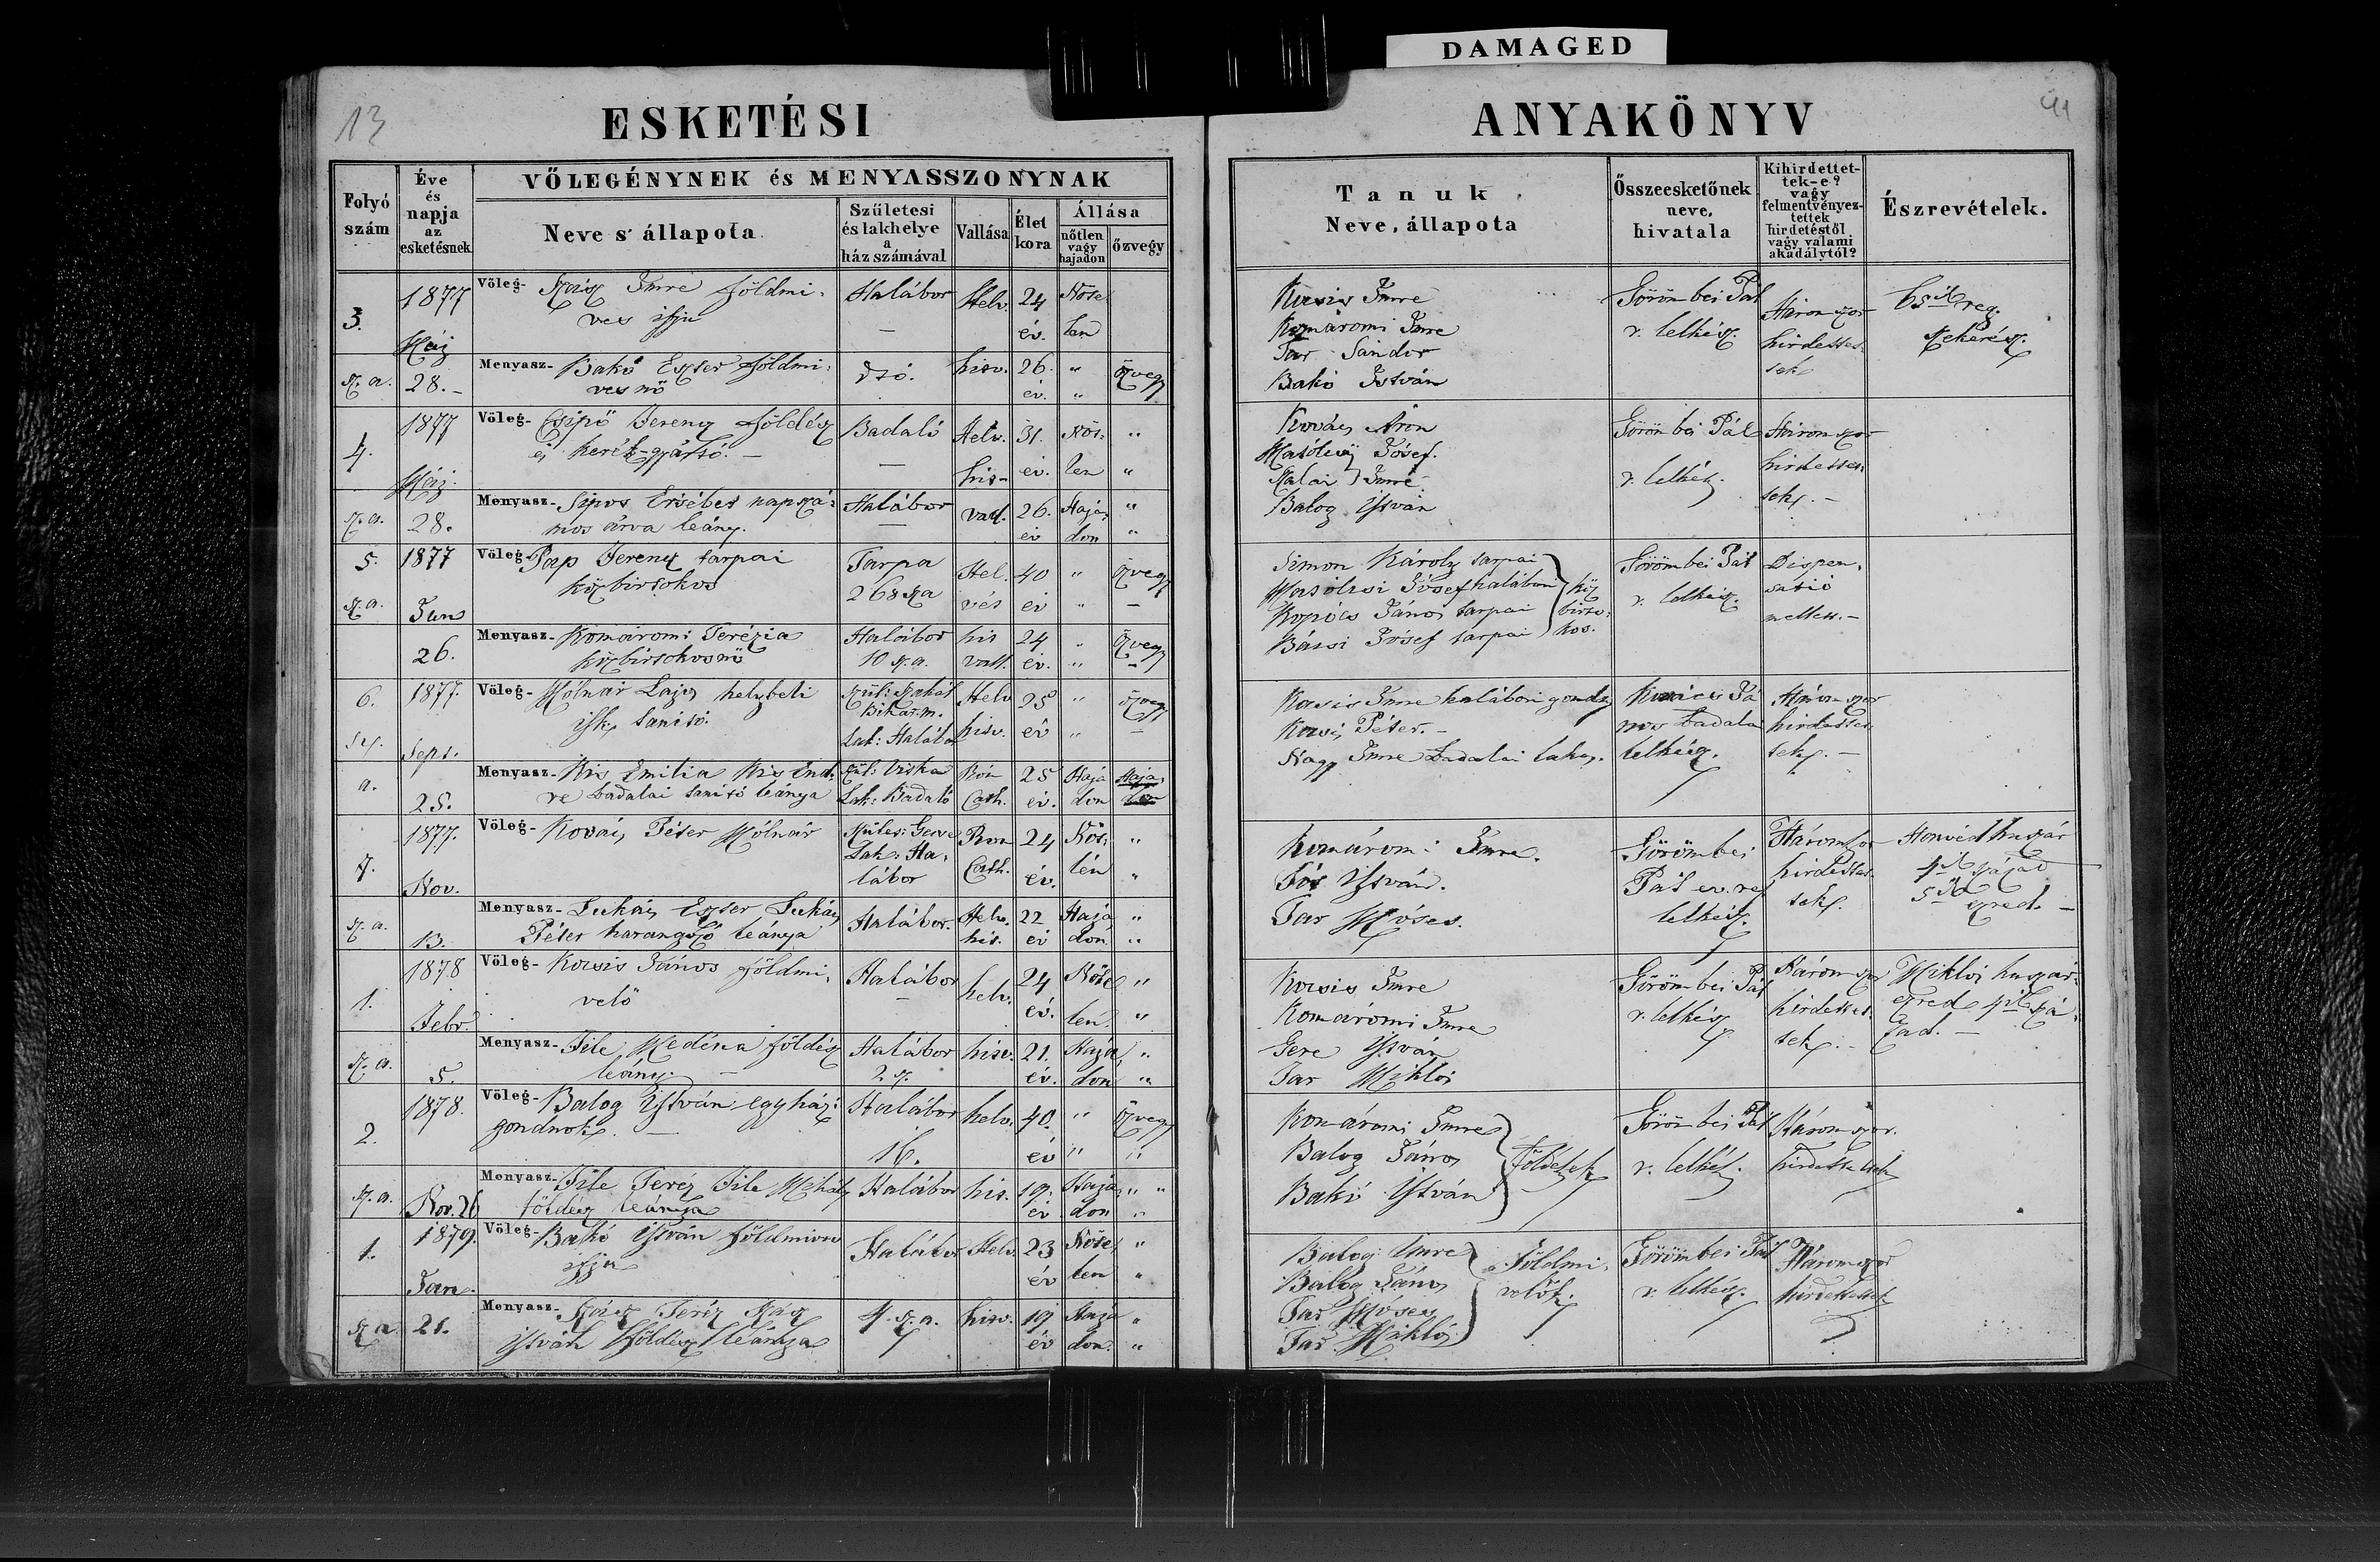 DAMAGED
13
ESKETÉSI
Folyó
szám
Éve
és
napja
az
esketésnek
VŐLEGÉNYNEK és MENYASSZONYNAK
Neve s' állapota
Születesi
és lakhelye
a
ház számával
Vallása
Élet
kora
Állása
nőtlen
vagy
hajadon
özvegy
3.
sz. a.
1877
Máj
28.-
Völeg- Szász Imre földmi-
ves ifju
Halábor
Helv.
24
év.
Nőte
len
Menyasz- Bakó Eszter földmi-
ves nő
hisv.
26.
év.
"
"
özvegy
4.
sz. a.
1877
Máj.
28.
Völeg- Csipő Ferencz földész
és kerék-gyártó.-
Badaló
Helv.
his-
31.
év.
Nőt-
len
"
"
Menyasz- Sipos Ersébet napszá-
mos árva leány.
Halábor
vall.
26.
év
Haja-
don
"
"
5.
sz. a.
1877
Jun
26.
Völeg- Pap Ferencz tarpai
közbirtokos
Tarpa
268 sza
Hel.
vét
40
év
"
"
özvegy
Menyasz- Komáromi Terézia
közbirtokosnő
Halábor
10 sz. a.
his
vall.
24
év.
"
"
özvegy
6.
a.
1877.
Sept.
25.
Völeg- Mólnár Lajos helybeli
isk. tanitó.
Bihar.m.
Lak: Halábor
Helv
hisv.
25
év
"
"
özvegy
Menyasz- Kis Emilia Kis End-
re badalai tanitó leánya
Szül: Viska
Lak: Badaló
Róm
Cath.
25
év.
Haja
don
Haja-
don
7.
sz. a.
1877.
Nov.
13.
Völeg- Kovács Péter Mólnár
Lak: Ha-
lábor
Rom
Cath.
24
év.
Nőt-
len
"
"
Menyasz- Lukács Eszter Lukács
Péter harangozó leánya
Halábor.
Helv.
his.
22
év
Haja
don.
"
"
1.
sz. a.
1878
Febr.
5.
Völeg- Kocsis János földmi-
velö
Halábor
helv.
24
év.
Nőte
len
"
"
Menyasz- File Medina földész
leány.-
Halábor
2 sz.
hisv.
21.
év.
Haja
don
"
"
2.
sz. a.
1878.
Nov. 26
Völeg- Balog István egyház-
gondnok.
Halábor
16.
helv.
40.
év
"
"
özvegy
"
Menyasz- File Teréz File Mihály
földész leánya
Halábor
his.
19.
év
Haja
don
"
"
1.
sz a.
1879.
Jan.
21.
Völeg- Bakó István földmives
ifju
Halábor
Helv.
23
év
Nőte
len
"
"
Menyasz- Szász Teréz Szász
István földész leánya
4. sz. a.
hisv.
19
év
Haja
don.
"
"
ANYAKÖNYV
Tanuk
Neve, állapota
Összeesketőnek
neve,
hivatala
Kihirdettet-
tek-e?
vagy
felmentvényez-
tettek
hirdetéstől
vagy valami
akadálytól?
Észrevételek.
Kocsis Imre
Komáromi Imre
Tar Sándor
Bakó István
Görömbei Pál
r. lelkész.
Háromszor
hirdettet-
tek
65ik reg.
Kovács Áron
József.
Imre
Balog István
Görömbei Pál
r. lelkész.
Háromszor
hirdettet-
tek.-
Simon Károly tarpai
József halábori
János tarpai
József tarpai
köz
birto-
kos.
Görömbei Pál
r. lelkész.
Dispen-
satió
mellett.-
Kocsis Imre halábori gondn.
Kocsis Péter.-
Nagy Imre badalai lakos.
Kovács Já
nos badalai
lelkész.
Háromszor
hirdettet-
tek.-
Komáromi Imre.
István.
Tar Móses.
Görömbei
Pál ev. ref
lelkész.
Háromszor
hirdettet-
tek.
Honvéd huszár
4ik század
5ik ezred.-
Kocsis Imre
Komáromi Imre
Gere István
Tar Miklós
Görömbei Pál
r. lelkész
Háromszor
hirdettet-
tek.-
Miklós huszár-
ezred 4ik szá-
zad.-
Komáromi Imre
Balog János
Bakó István
földészek
Görömbei Pál
r. lelkész.
Háromszor.
hirdettettek
Balog Imre
Balog János
Tar Móses
Tar Miklós
Földmi-
velők.
Görömbei Pál
r. lelkész.
Háromszor
hirdettettek